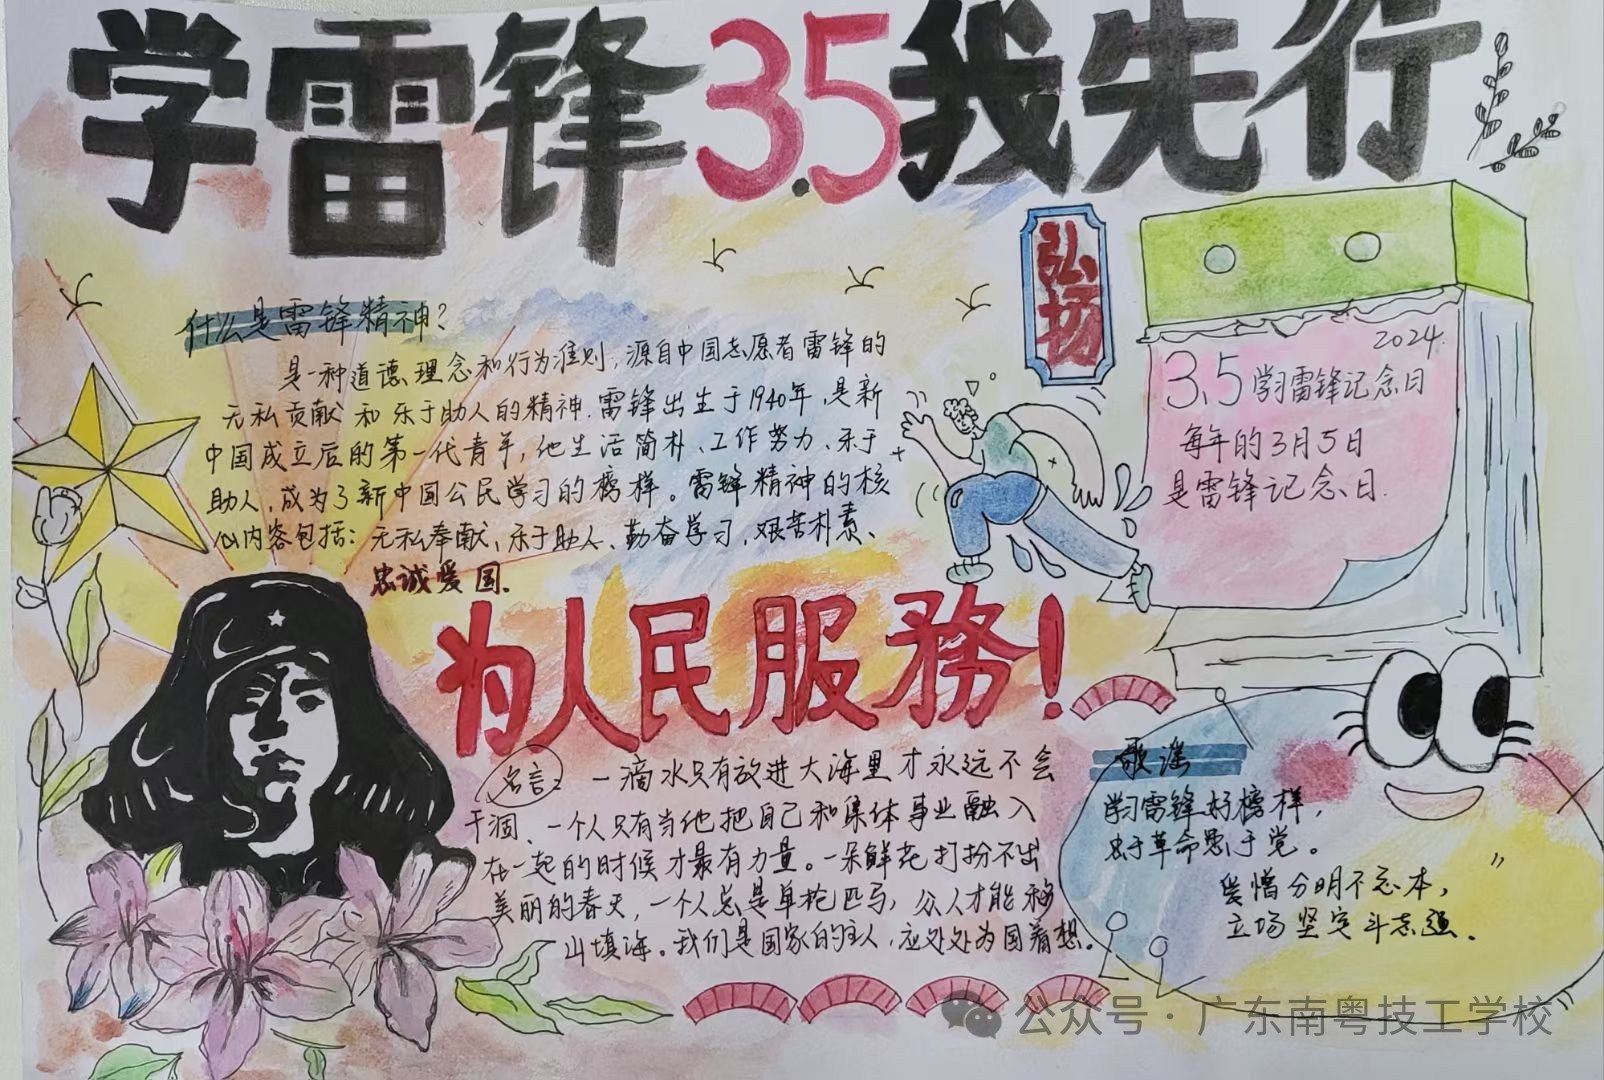 学雷锋3.5我先行
弘扬
什么是雷锋精神?
是一种道德理念和行为准则,源自中国志愿者雷锋的
无私贡献和乐于助人的精神.雷锋出生于1940年,是新
中国成立后的第一代青年,他生活简朴、工作努力、乐于
助人,成为了新中国公民学习的榜样。雷锋精神的核
心内容包括:无私奉献、乐于助人、勤奋学习,艰苦朴素、
忠诚爱国.
2024.
3.5学习雷锋记念日
每年的3月5日
是雷锋记念日.
为人民服務!
名言:一滴水只有放进大海里才永远不会
干涸、一个人只有当他把自己和集体事业融入
在一起的时候才最有力量。一朵鲜花打扮不出
美丽的春天,一个人总是单枪匹马,众人才能移
山填海。我们是国家的主人,应处处为国着想。
歌谣
学习雷锋好榜样,
忠于革命忠于党。
爱憎分明不忘本,
立场坚定斗志强.
公众号·广东南粤技工学校